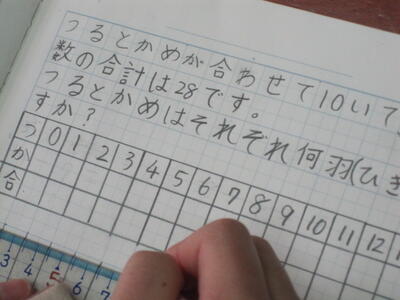 つるとかめが合わせて10いて、
数の合計は28です。
つるとかめはそれぞれ何羽(ひき
すか?
つ 0 1 2 3 4 5 6 7 8 9 10 11 12
か
合
3 4 5 6 7